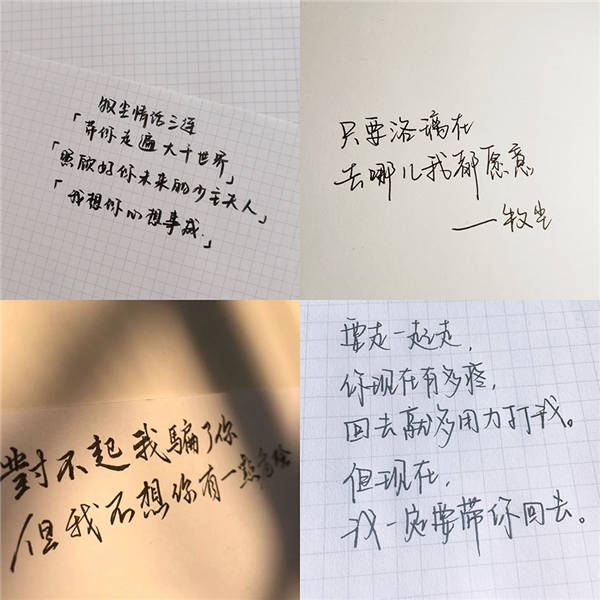 牧尘情话三连
「带你走遍大千世界」
「照顾好你未来的少主夫人」
「我想你心想事成.」
只要洛璃在
去哪儿我都愿意
——牧尘
對不起我騙了你
但我不想你有一点危险
要走一起走,
你现在有多疼,
回去就多用力打我。
但现在,
我一定要带你回去。